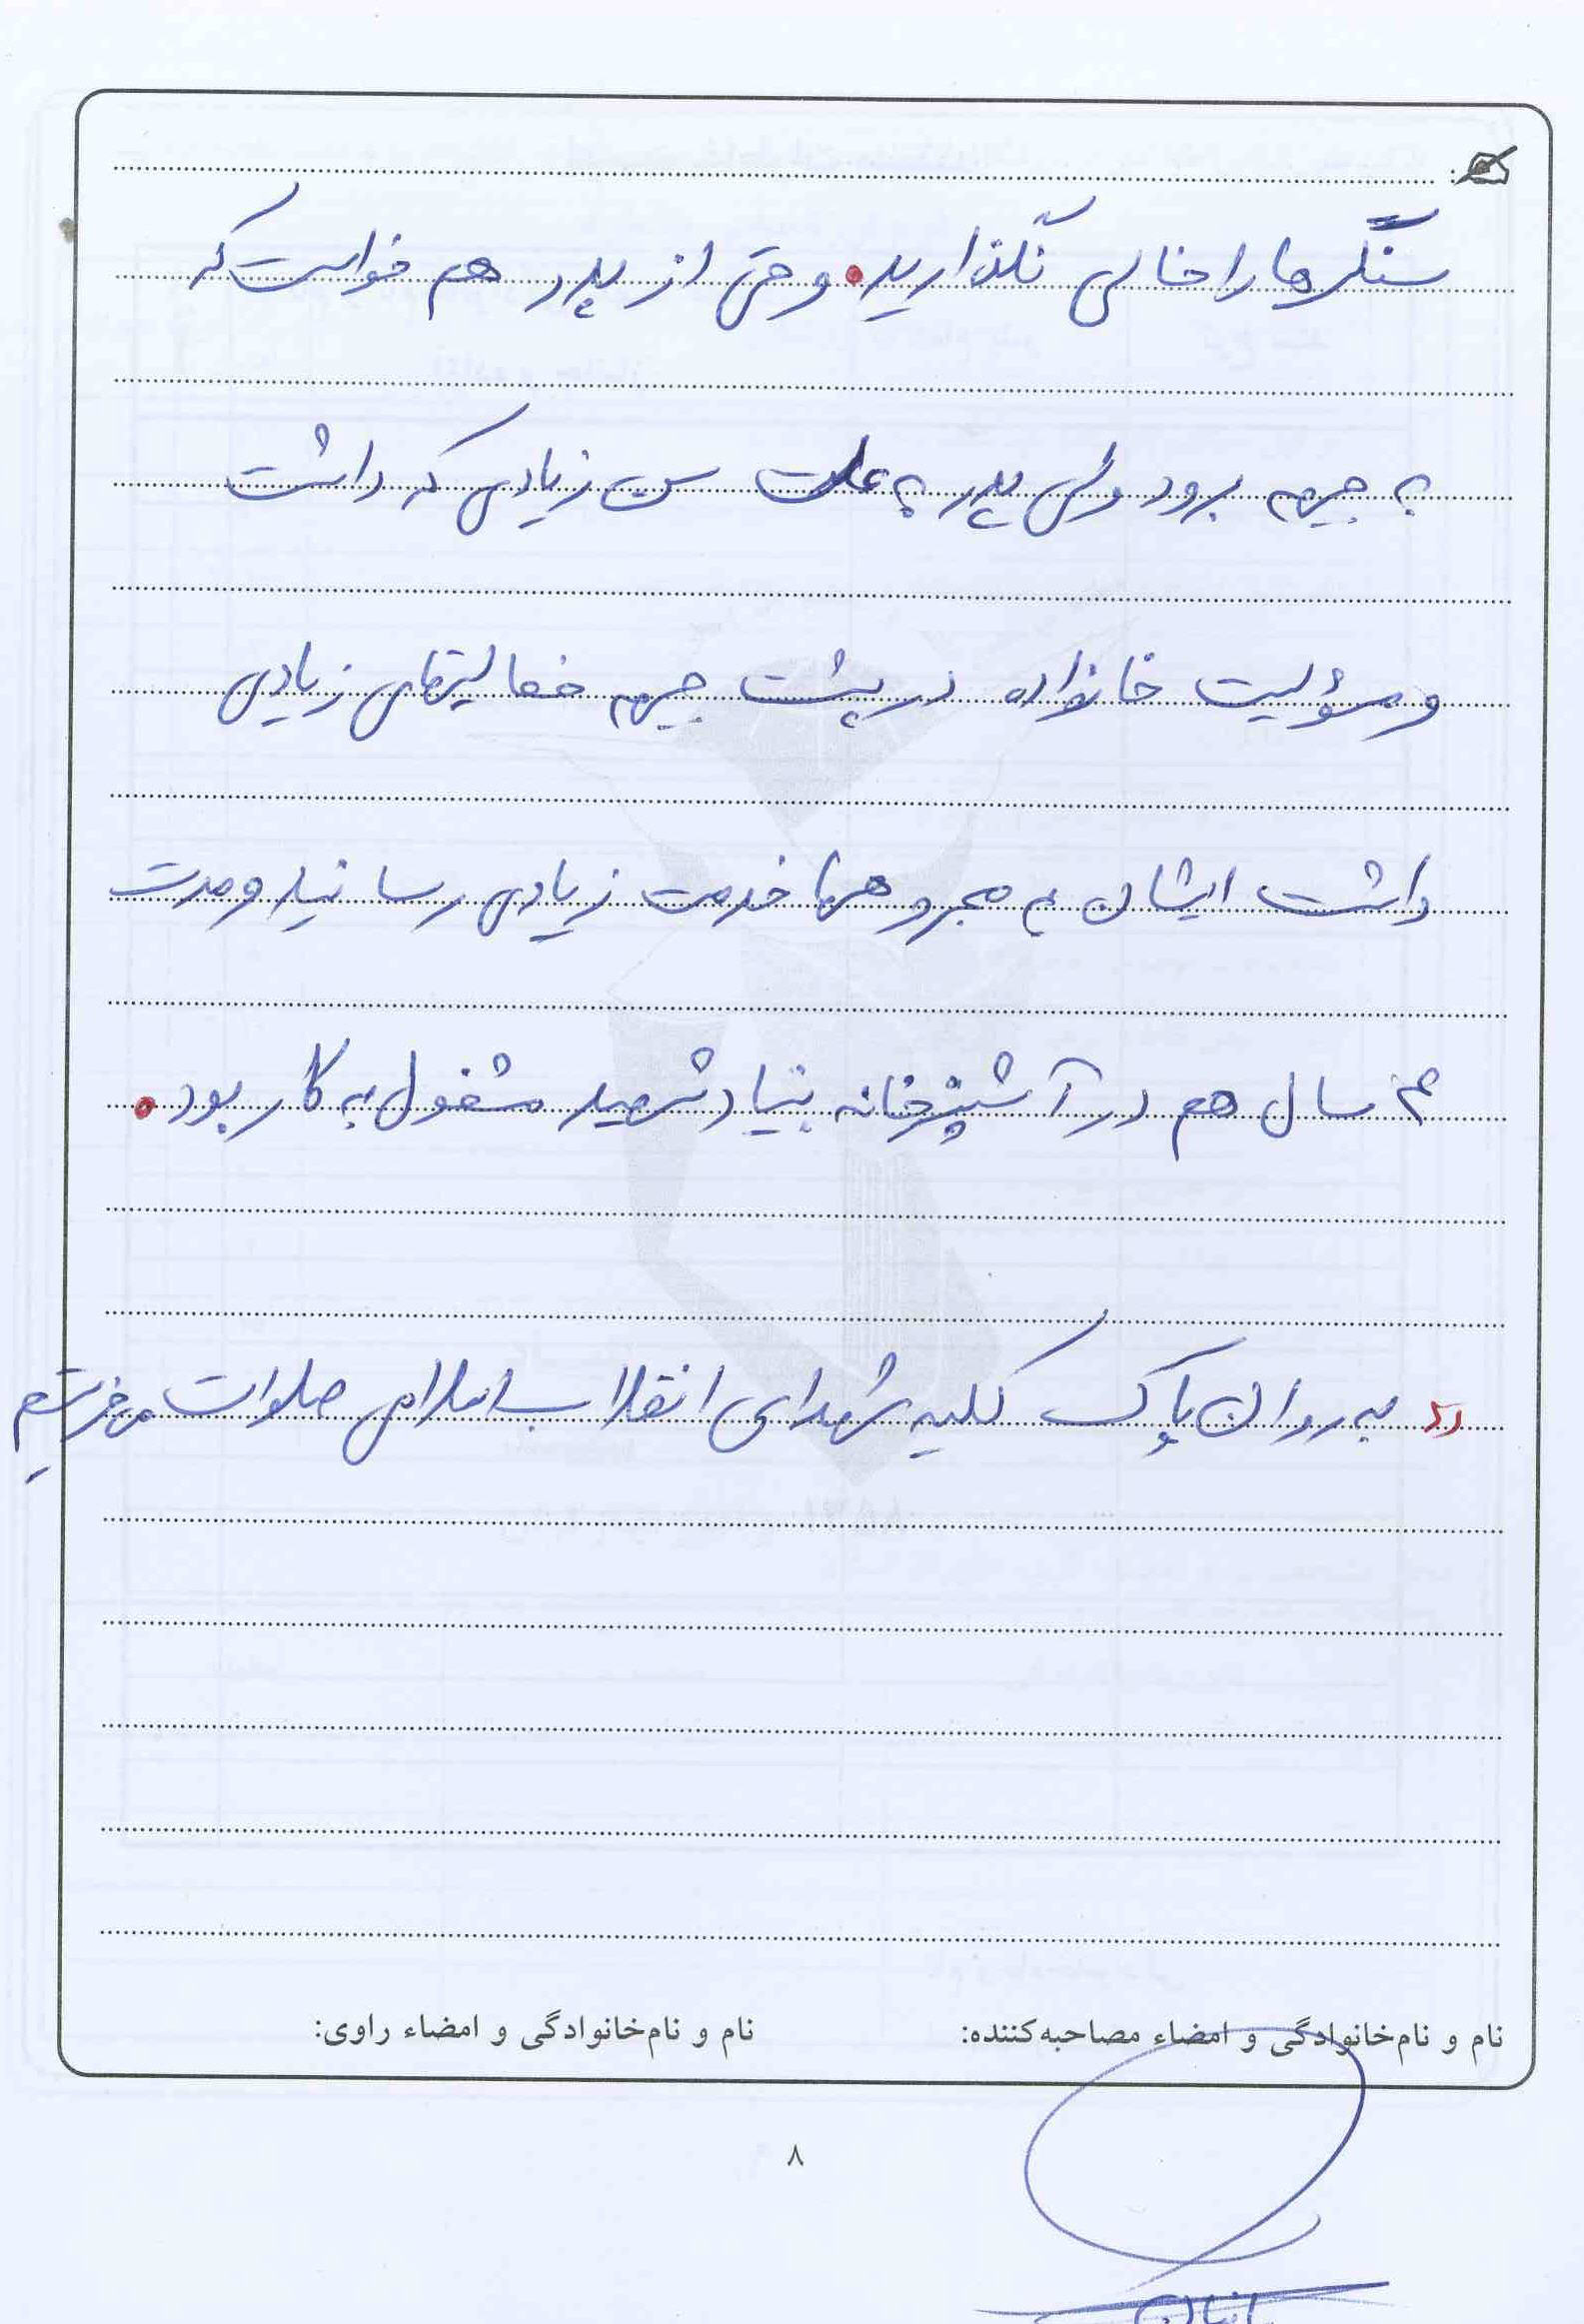 سنگرها را خالی نگذارید. و حتی از پدر هم خواست که
به جبهه برود ولی پدر به علت سن زیادی که داشت
و مسؤلیت خانواده در پشت جبهه فعالیتهای زیادی
داشت ایشان به مجروحها خدمت زیادی رسانید و مدت
۴ سال هم در آشپزخانه بنیاد شهید مشغول به کار بود.
« به روان پاک کلیه شهدای انقلاب اسلامی صلوات می‌فرستیم
نام و نام‌خانوادگی و امضاء مصاحبه‌کننده: نام و نام‌خانوادگی و امضاء راوی:
۸